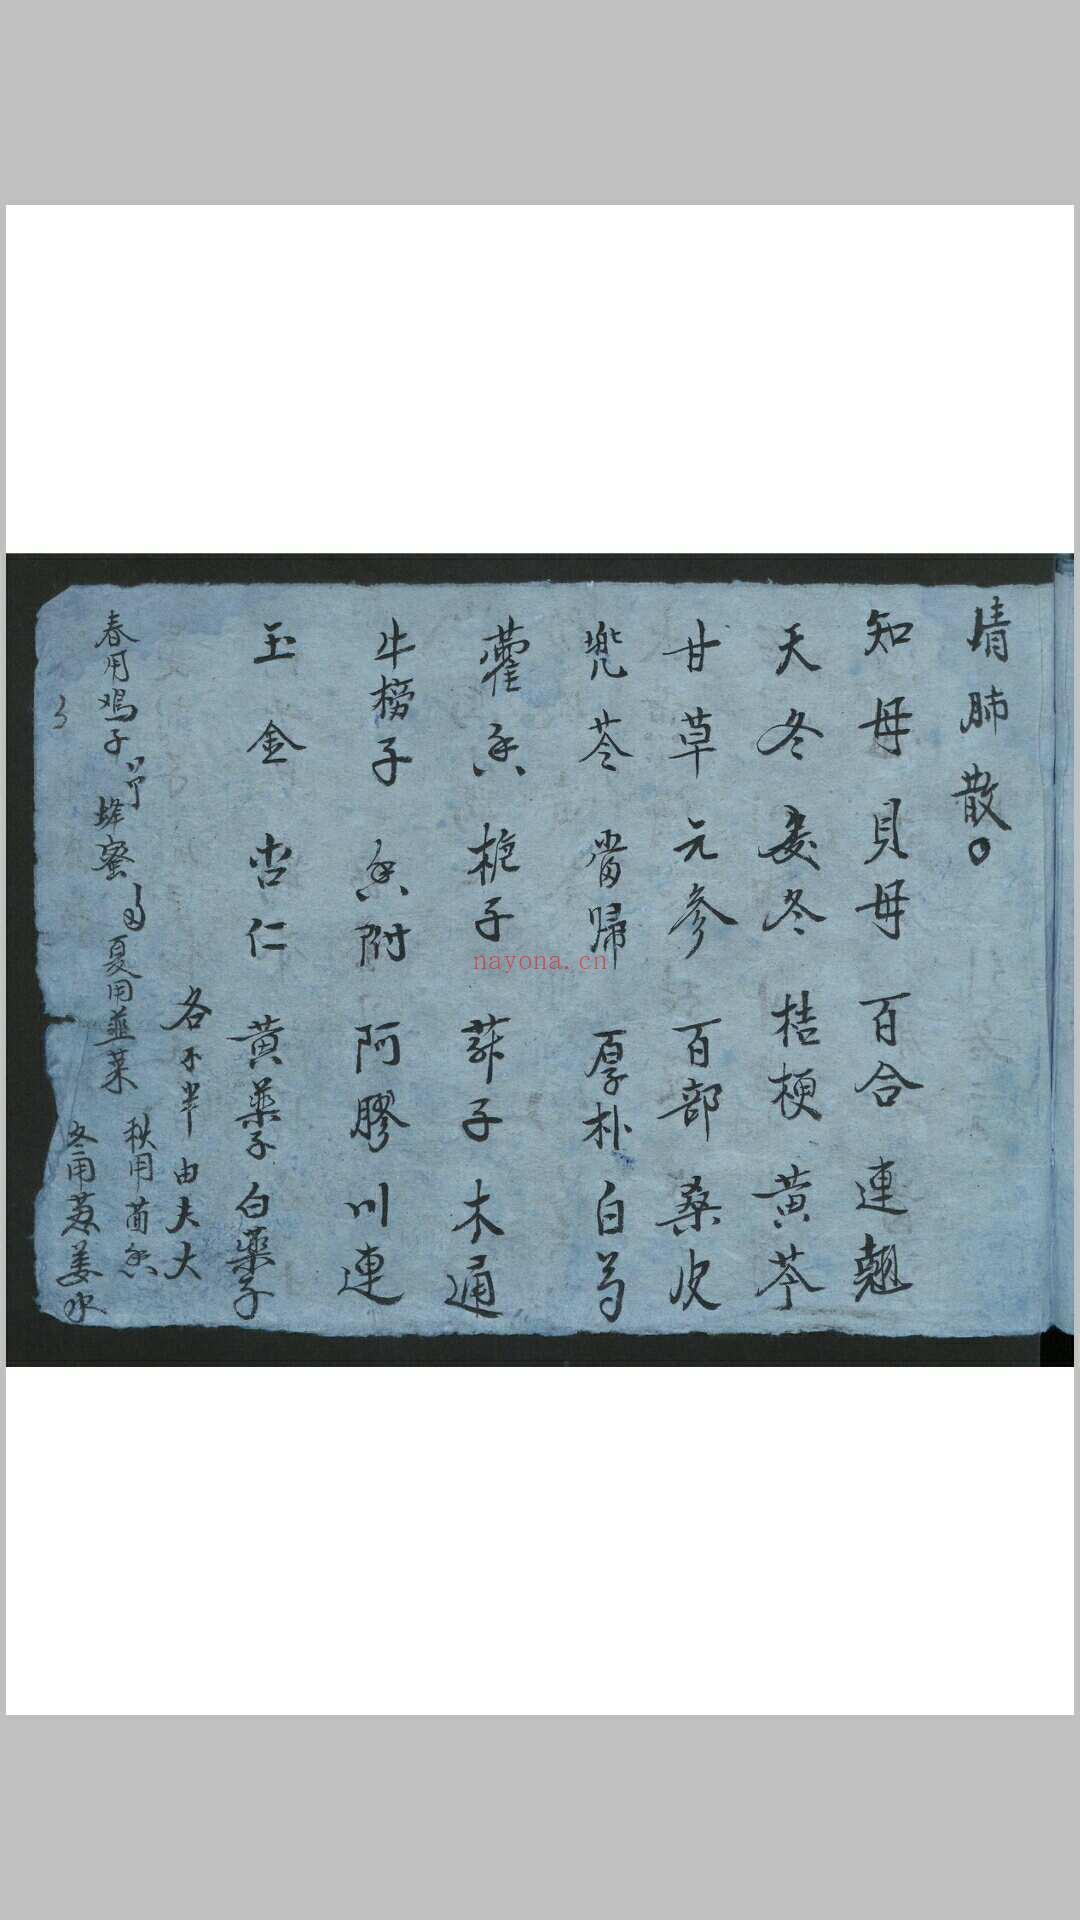 清肺散〇
知母 貝母 百合 連翹
天冬 麦冬 桔梗 黄芩
甘草 元参 百部 桑皮
兜苓 當歸 厚朴 白芍
藿香 栀子 蘇子 木通
牛榜子 香附 阿膠 川連
玉金 杏仁 黄藥子 白藥子
各 半 由大大
春用鸡子 蜂蜜 夏用韮菜 秋用茴香
冬用葱姜水
nayona.cn